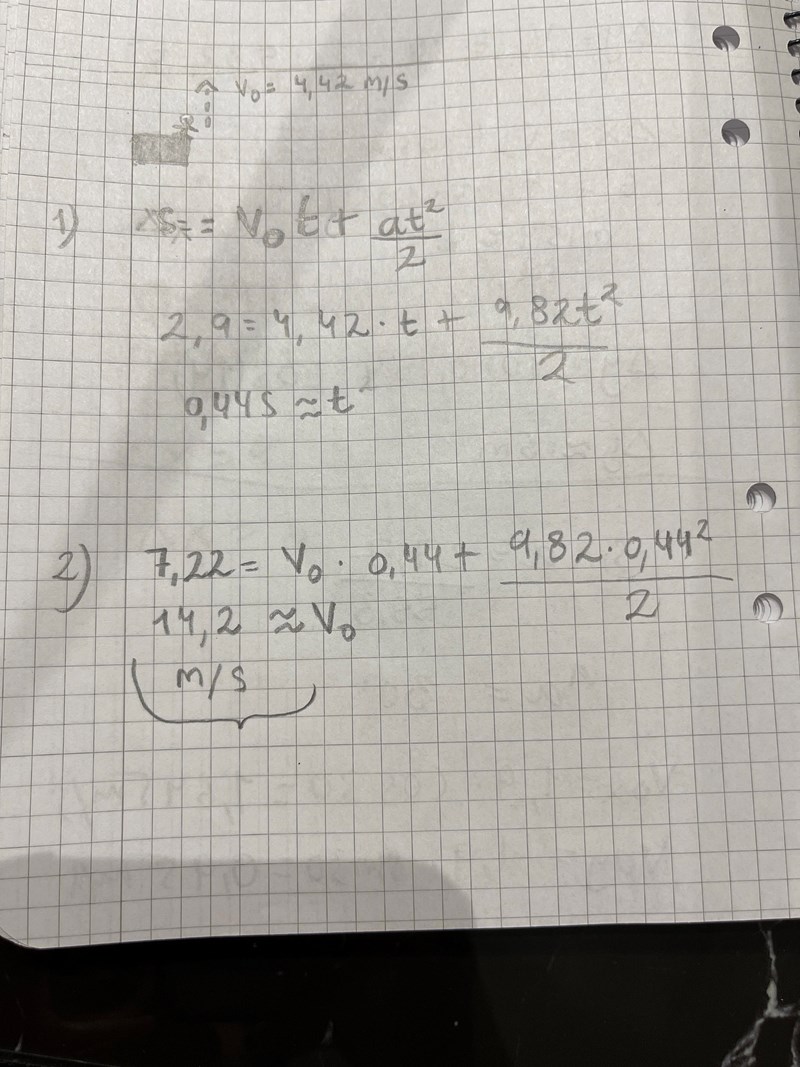 V₀ = 4,42 m/s
1) ΔS = V₀t + at²/2
2,9 = 4,42 · t + 9,82t²/2
0,44s ≈ t
2) 7,22 = V₀ · 0,44 + 9,82 · 0,44²/2
14,2 ≈ V₀
m/s